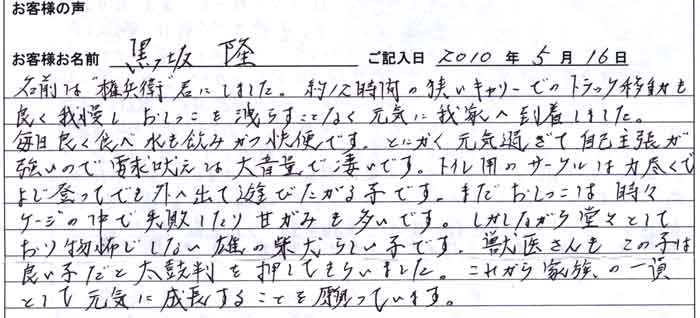 お客様の声
お客様お名前 黒坂 隆 ご記入日 2010 年 5 月 16 日
名前は"権兵衛"君にしました。約12時間の狭いキャリーでのトラック移動も
良く我慢し おしっこを洩らすことなく元気に我家へ到着しました。
毎日良く食べ水も飲みかつ快便です。とにかく元気過ぎて自己主張が
強いので要求吠えは大音量で凄いです。トイレ用のサークルは力尽くで
よじ登ってでも外へ出て遊びたがる子です。まだおしっこは時々
ケージの中で失敗したり甘がみも多いです。しかしながら堂々として
おり物怖じしない雄の柴犬らしい子です。獣医さんもこの子は
良い子だと太鼓判を押してもらいました。これから家族の一員
として元気に成長することを願っています。